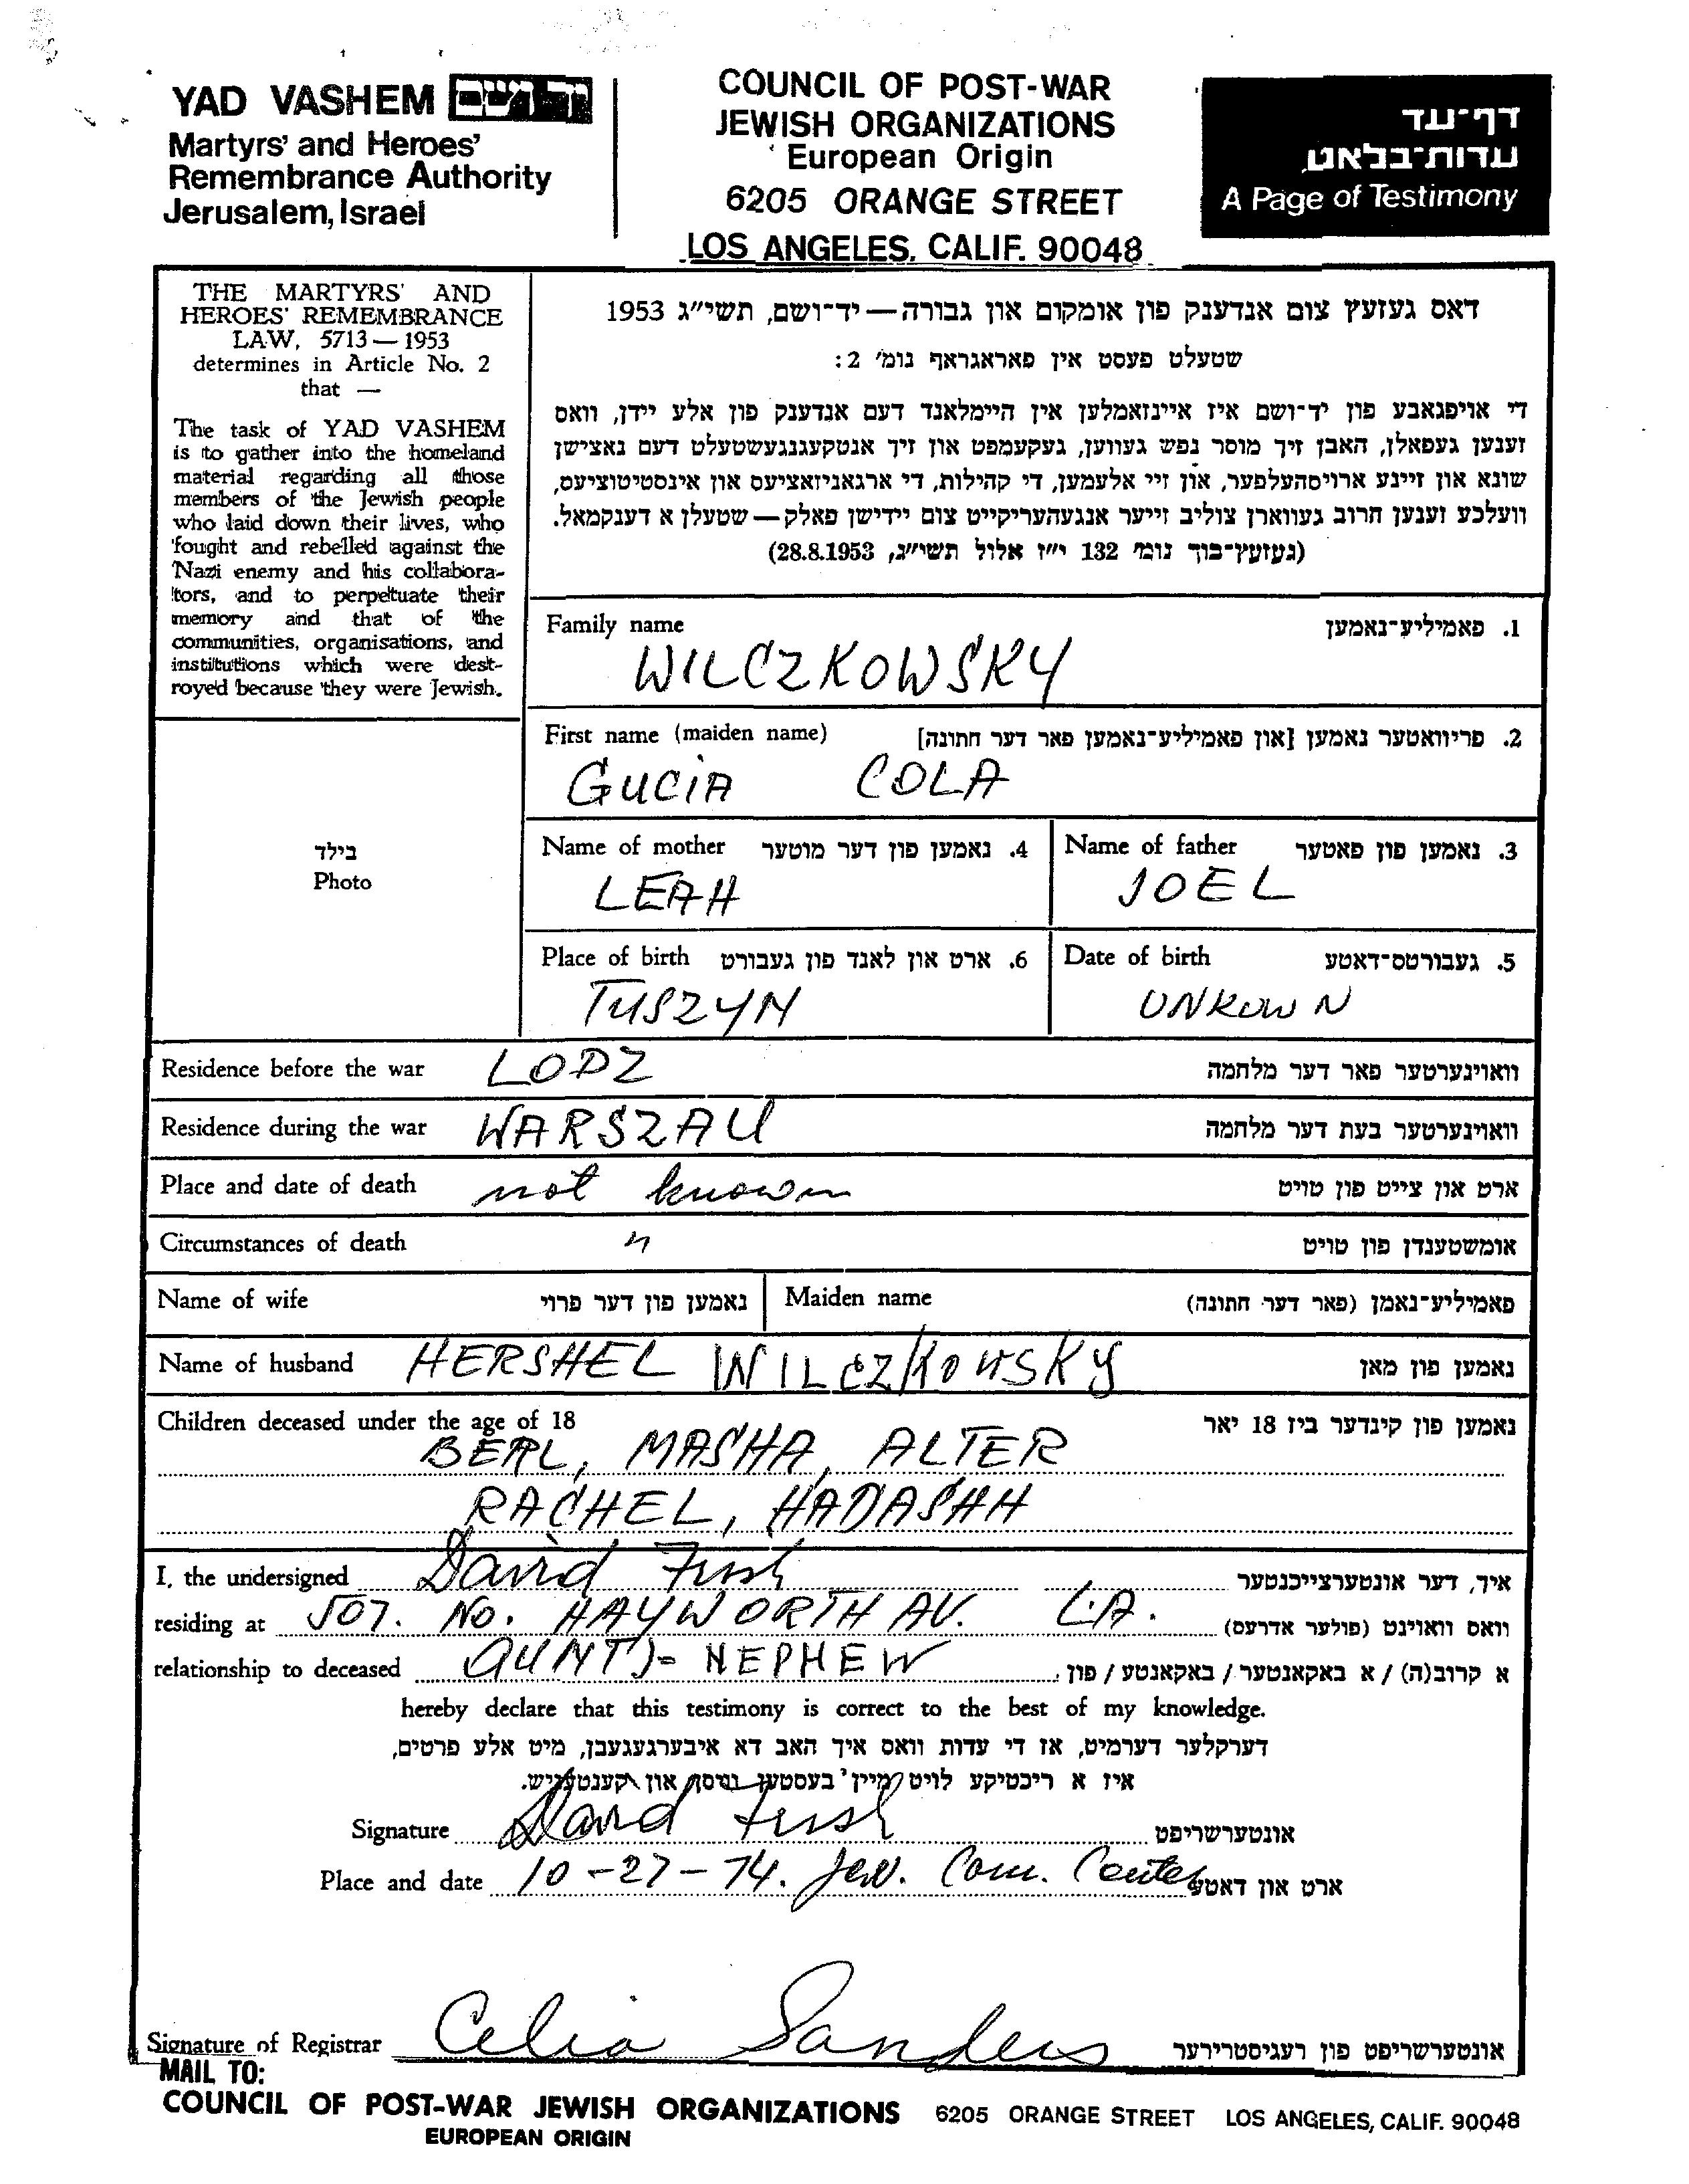 YAD VASHEM יד ושם
Martyrs' and Heroes'
Remembrance Authority
Jerusalem, Israel
COUNCIL OF POST-WAR
JEWISH ORGANIZATIONS
European Origin
6205 ORANGE STREET
LOS ANGELES, CALIF. 90048
דף-עד
עדות-בלאט
A Page of Testimony
THE MARTYRS' AND
HEROES' REMEMBRANCE
LAW, 5713 — 1953
determines in Article No. 2
that —
The task of YAD VASHEM
is to gather into the homeland
material regarding all those
members of the Jewish people
who laid down their lives, who
fought and rebelled against the
Nazi enemy and his collabora-
tors, and to perpetuate their
memory and that of the
communities, organisations, and
institutions which were dest-
royed because they were Jewish.
דאס געזעץ צום אנדענק פון אומקום און גבורה — יד-ושם, תשי"ג 1953
שטעלט פעסט אין פאראגראף נומ' 2:
די אויפגאבע פון יד-ושם איז איינזאמלען אין היימלאנד דעם אנדענק פון אלע יידן, וואס
זענען געפאלן, האבן זיך מוסר נפש געווען, געקעמפט און זיך אנטקעגנגעשטעלט דעם נאצישן
שונא און זיינע ארויסהעלפער, און זיי אלעמען, די קהילות, די ארגאניזאציעס און אינסטיטוציעס,
וועלכע זענען חרוב געווארן צוליב זייער אנגעהעריקייט צום יידישן פאלק — שטעלן א דענקמאל.
(געזעץ-בוך נומ' 132 י"ז אלול תשי"ג, 28.8.1953)
Family name 1. פאמיליע-נאמען
WILCZKOWSKY
First name (maiden name) 2. פריוואטער נאמען [און פאמיליע-נאמען פאר דער חתונה]
GUCIA COLA
בילד
Photo
Name of mother 4. נאמען פון דער מוטער Name of father 3. נאמען פון פאטער
LEAH JOEL
Place of birth 6. ארט און לאנד פון געבורט Date of birth 5. געבורטס-דאטע
TUSZYN UNKOWN
Residence before the war LODZ וואוינערטער פאר דער מלחמה
Residence during the war WARSZAU וואוינערטער בעת דער מלחמה
Place and date of death not known ארט און צייט פון טויט
Circumstances of death " אומשטענדן פון טויט
Name of wife נאמען פון דער פרוי Maiden name פאמיליע-נאמן (פאר דער חתונה)
Name of husband HERSHEL WILCZKOWSKY נאמען פון מאן
Children deceased under the age of 18 נאמען פון קינדער ביז 18 יאר
BERL, MASHA, ALTER
RACHEL, HADASHH
I, the undersigned David Fish איך, דער אונטערצייכנטער
residing at 507. No. HAYWORTH AV. L.A. וואס וואוינט (פולער אדרעס)
relationship to deceased AUNT)- NEPHEW א קרוב(ה) / א באקאנטער / באקאנטע / פון
hereby declare that this testimony is correct to the best of my knowledge.
דערקלער דערמיט, אז די עדות וואס איך האב דא איבערגעגעבן, מיט אלע פרטים,
איז א ריכטיקע לויט מיין בעסטען וויסן און קענטעניש.
Signature David Fish אונטערשריפט
Place and date 10-27-74. Jew. Com. Center ארט און דאטע
Signature of Registrar Celia Sanders אונטערשריפט פון רעגיסטרירער
MAIL TO:
COUNCIL OF POST-WAR JEWISH ORGANIZATIONS 6205 ORANGE STREET LOS ANGELES, CALIF. 90048
EUROPEAN ORIGIN